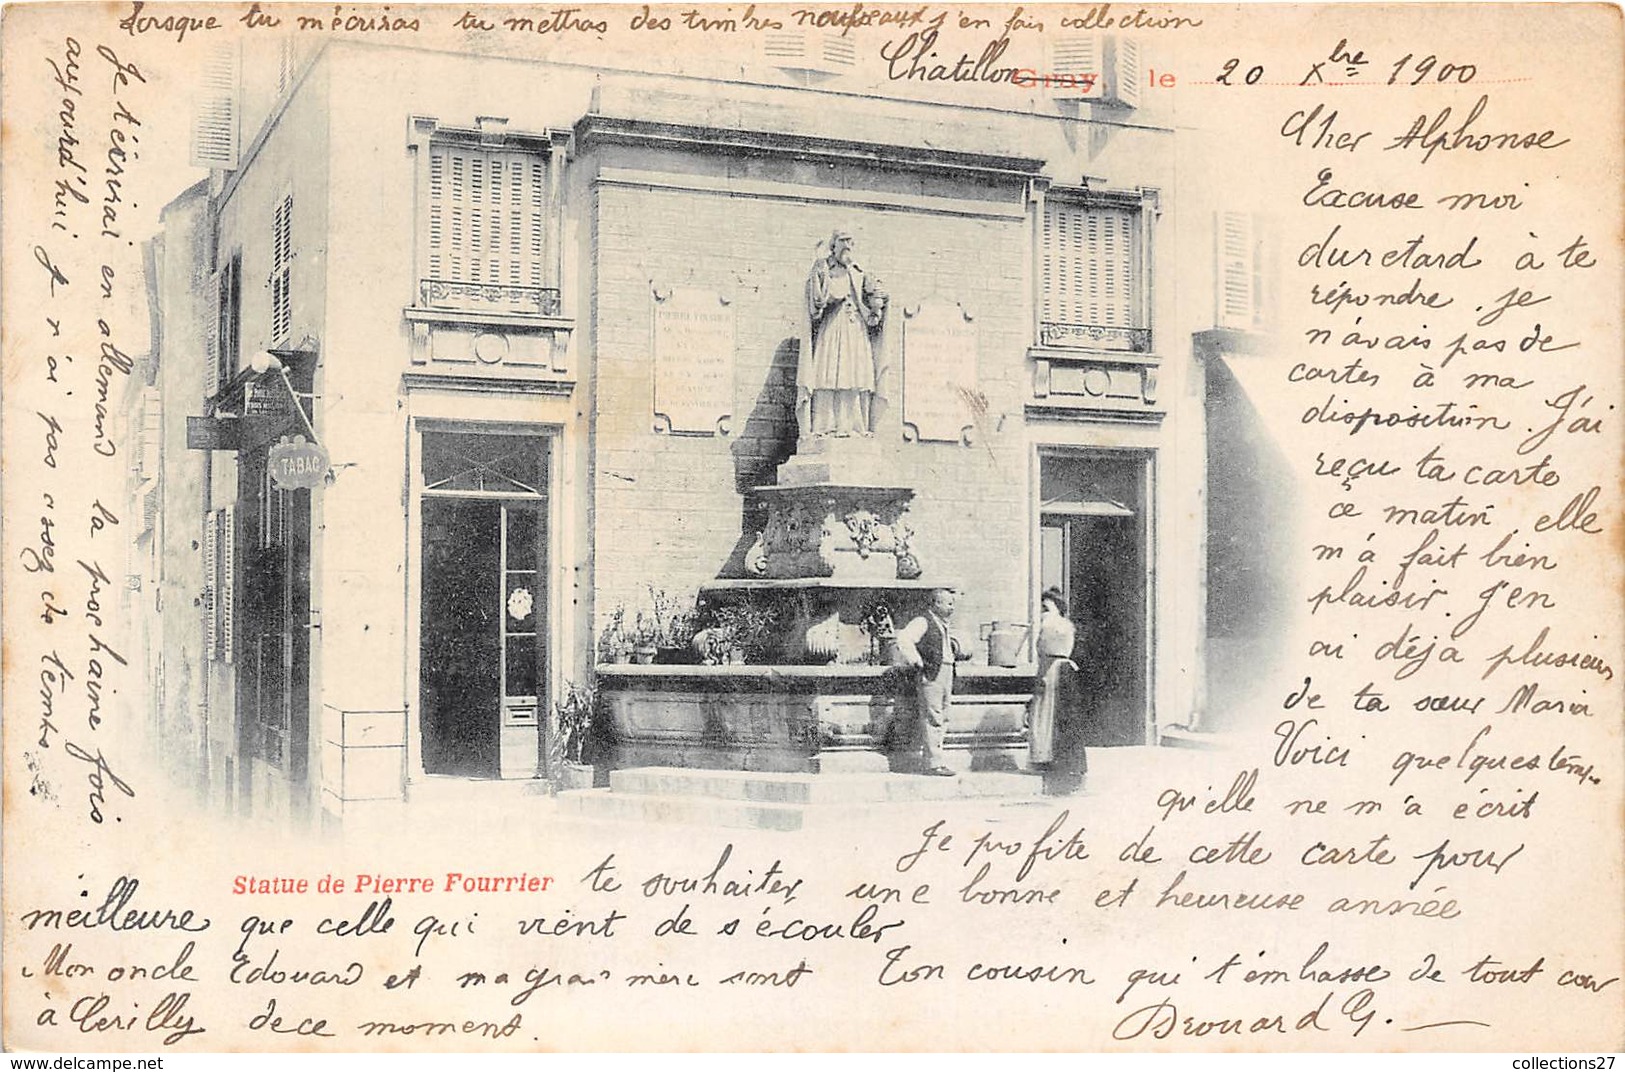 Lorsque tu m'écriras tu mettras des timbres nouveaux j'en fais collection
Châtillon Gray, le 20 Xbre 1900
Cher Alphonse
Excuse moi
du retard à te
répondre. je
n'avais pas de
cartes à ma
disposition. J'ai
reçu ta carte
ce matin, elle
m'a fait bien
plaisir. J'en
ai déja plusieurs
de ta sœur Maria
Voici quelques temps
qu'elle ne m'a écrit
Je profite de cette carte pour
te souhaiter une bonne et heureuse année
meilleure que celle qui vient de s'écouler
Ton cousin qui t'embrasse de tout cœur
Drouard G.
Mon oncle Edouard et ma grand mère sont
à Cerilly de ce moment.
Je t'écrirai en allemand la prochaine fois
aujourd'hui je n'ai pas assez de temps
Statue de Pierre Fourrier
TABAC
PIERRE FOURIER
collections27